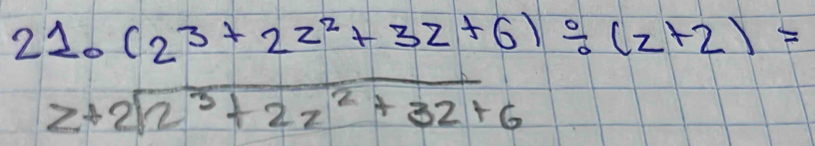 21. (z³ + 2z² + 3z + 6) ÷ (z + 2) =
z + 2 √ z³ + 2z² + 3z + 6